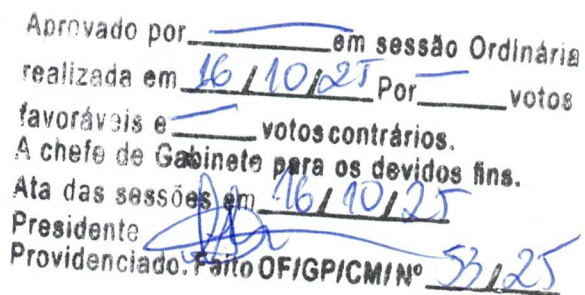 Aprovado por — em sessão Ordinária
realizada em 16/10/25 Por — votos
favoráveis e — votos contrários.
A chefe de Gabinete para os devidos fins.
Ata das sessões em 16/10/25
Presidente
Providenciado. Faito OF/GP/CMI Nº 53/25